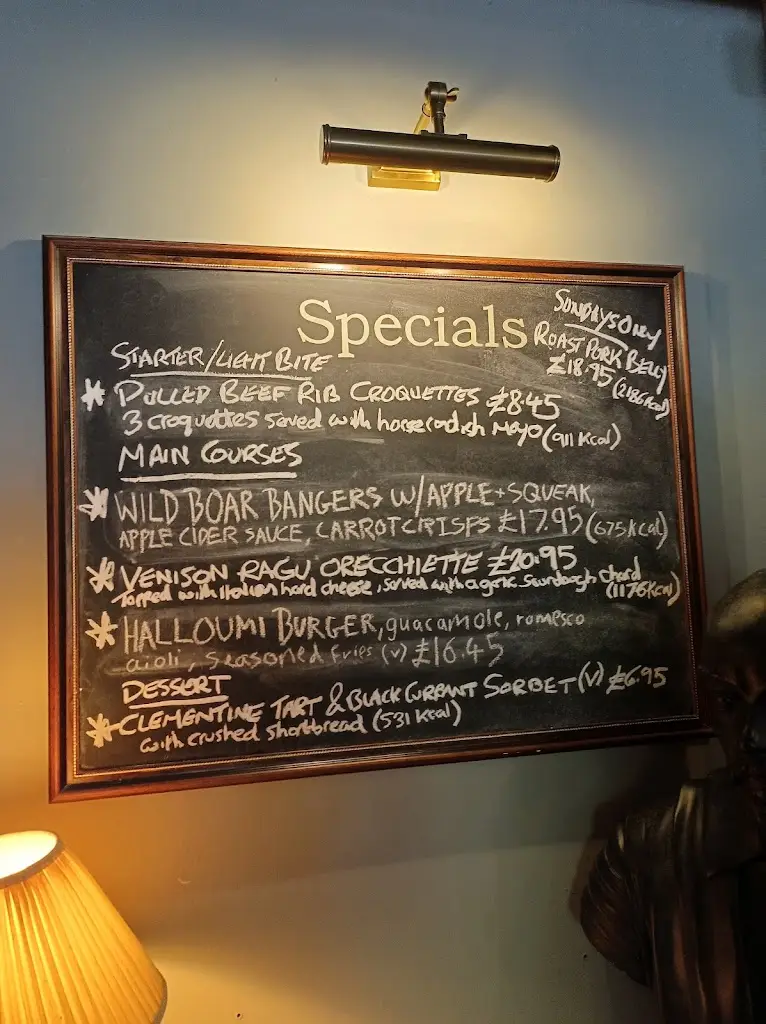 Specials
SUNDAYS ONLY
ROAST PORK BELLY
£18.95 (2186 Kcal)
STARTER/LIGHT BITE
* PULLED BEEF RIB CROQUETTES £8.45
3 croquettes served with horseradish Mayo (911 Kcal)
MAIN COURSES
* WILD BOAR BANGERS W/APPLE + SQUEAK,
APPLE CIDER SAUCE, CARROT CRISPS £17.95 (675 KCal)
* VENISON RAGU ORECCHIETTE £20.95
Topped with Italian hard cheese, served with garlic Sourdough (1176 Kcal)
* HALLOUMI BURGER, guacamole, romesco
aioli, seasoned fries (v) £16.45
DESSERT
* CLEMENTINE TART & BLACKCURRANT SORBET (V) £6.95
with crushed shortbread (531 Kcal)